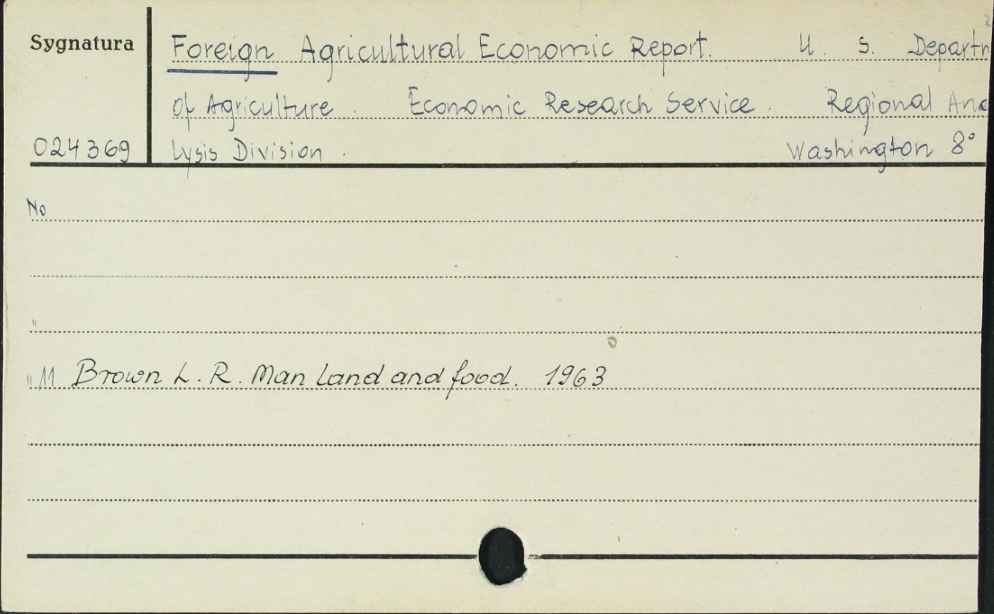 Sygnatura
Foreign Agricultural Economic Report. U. S. Departm
of Agriculture. Economic Research Service. Regional Ana
024369 lysis Division. Washington 8°
No
"
" 11 Brown L. R. Man land and food. 1963